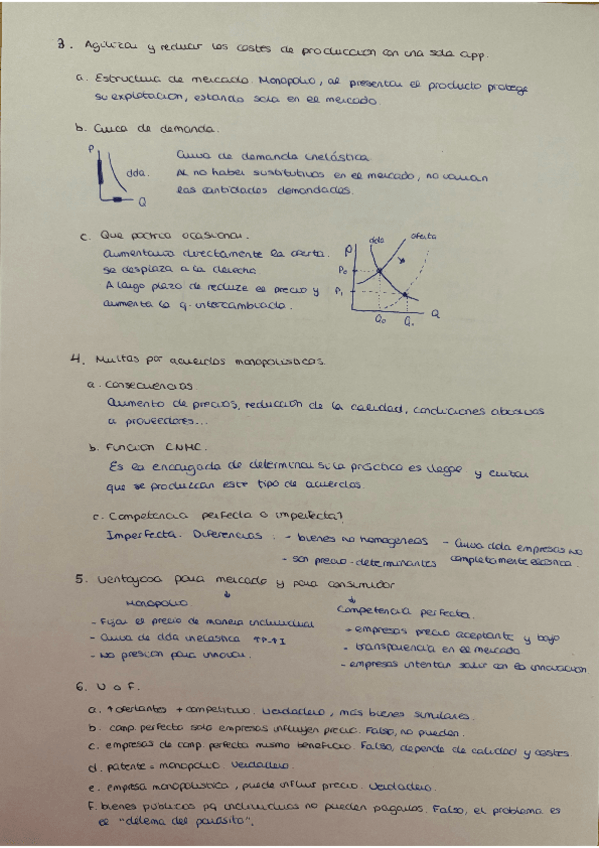 3. Agilizar y reducir los costes de producción con una sola app.
a. Estructura de mercado. Monopolio, al presentar el producto protege
su explotación, estando sola en el mercado.
b. Curva de demanda.
P
dda.
Q
Curva de demanda inelástica
Al no haber sustitutivos en el mercado, no varían
las cantidades demandadas.
c. Que podría ocasionar.
Aumentaría directamente la oferta.
se desplaza a la derecha
A largo plazo de reduze el precio y
aumenta la q. intercambiada.
P
dda
oferta
P0
P1
Q0
Q1
Q
4. Multas por acuerdos monopolísticos.
a. Consecuencias
Aumento de precios, reducción de la calidad, condiciones abusivas
a proveedores...
b. Función CNMC.
Es la encargada de determinar si la práctica es ilegal y evitar
que se produzcan este tipo de acuerdos.
c. Competencia perfecta o imperfecta?
Imperfecta. Diferencias: - bienes no homogéneos - Curva dda empresas no
- son precio-determinantes completamente elástica.
5. Ventajas para mercado y para consumidor
Monopolio
- Fijar el precio de manera individual
- Curva de dda inelástica ↑P→↑I
- No presión para innovar.
Competencia perfecta.
- empresas precio aceptante y bajo
- transparencia en el mercado
- empresas intentan salir con la innovación
6. V o F.
a. + ofertantes + competitivo. Verdadero, más bienes similares.
b. comp. perfecta solo empresas influyen precio. Falso, no pueden.
c. empresas de comp. perfecta mismo beneficio. Falso, depende de calidad y costes.
d. patente = monopolio. Verdadero.
e. empresa monopolística, puede influir precio. Verdadero.
f. bienes públicos pq individuos no pueden pagarlos. Falso, el problema es
el "dilema del parásito".